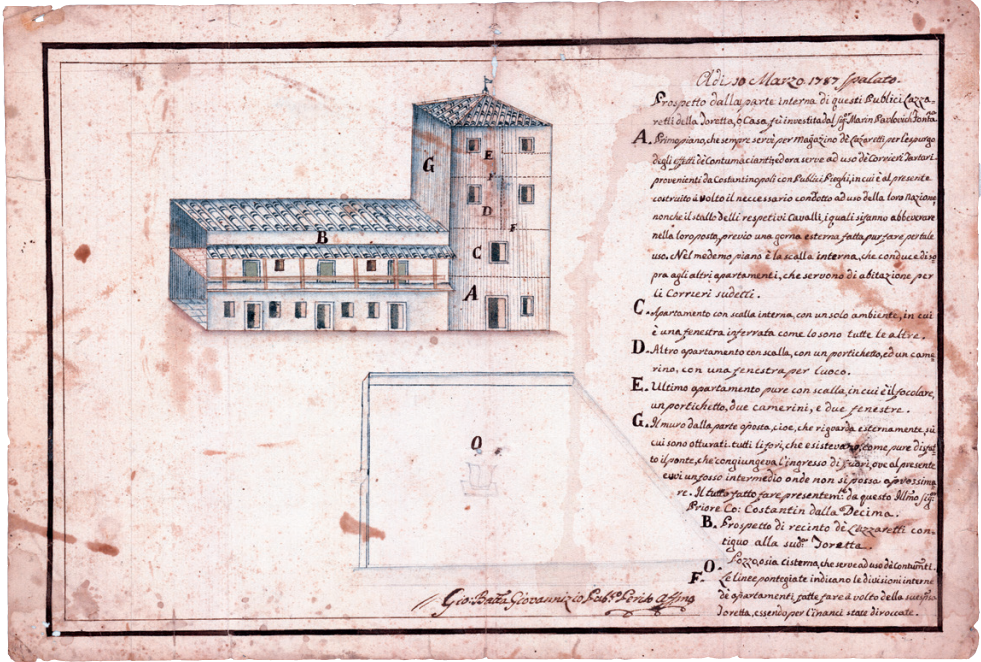 Adi 10 Marzo 1787 Spalato.
Prospetto dalla parte interna di questi Publici Lazza=
retti della Toretta, o Casa fù investita dal Sig.r Marin Pavlovich
A. Primo piano, che sempre servè per magazino dè Lazaretti per l'espurgo
degli effetti dè Contumacianti, ed ora serve ad uso dè Corrieri Tartari
provenienti da Costantinopoli con Publici Pieghi, in cui è al presente
costruito à volto il neccessario condotto ad uso della loro nazione,
nonche il stallo delli respetivi Cavalli, i quali si fanno abbeverare
nella loro posta, previo una gorna esterna fatta pur fare per tale
uso. Nel medemo piano è la scalla interna, che conduce di so=
pra agli altri apartamenti, che servono di abitazione per
li Corrieri sudetti.
C. Apartamento con scalla interna, con un solo ambiente, in cui
è una fenestra inferrata come lo sono tutte le altre.
D. Altro apartamento con scalla, con un portichetto, ed un came=
rino, con una fenestra per luoco.
E. Ultimo apartamento pure con scalla, in cui è il focolare,
un portichetto, due camerini, e due fenestre.
G. Il muro dalla parte oposta, cioe, che riguarda esternamente, sù
cui sono otturati tutti li fori, che esistevano, come pure disfat=
to il ponte, che congiungeva l'ingresso di fuori, ove al presente
evvi un fosso intermedio onde non si possa aprossima=
re. Il tutto fatto fare presentem.te da questo Illmo Sig.r
Priore Co: Costantin dalla Decima.
B. Prospetto di recinto de Lazzaretti con=
tiguo alla sud.a Toretta.
O. Pozzo, o sia cisterna, che serve ad uso dè contum.ti.
F. Le linee pontegiate indicano le divisioni interne
dè apartamenti fatte fare à volto della sudetta
Toretta, essendo per l'inanci state diroccate.
G
E
F
D
F
B
C
A
O
Gio: Batta Giovannizio Pub.co Perito Affmo